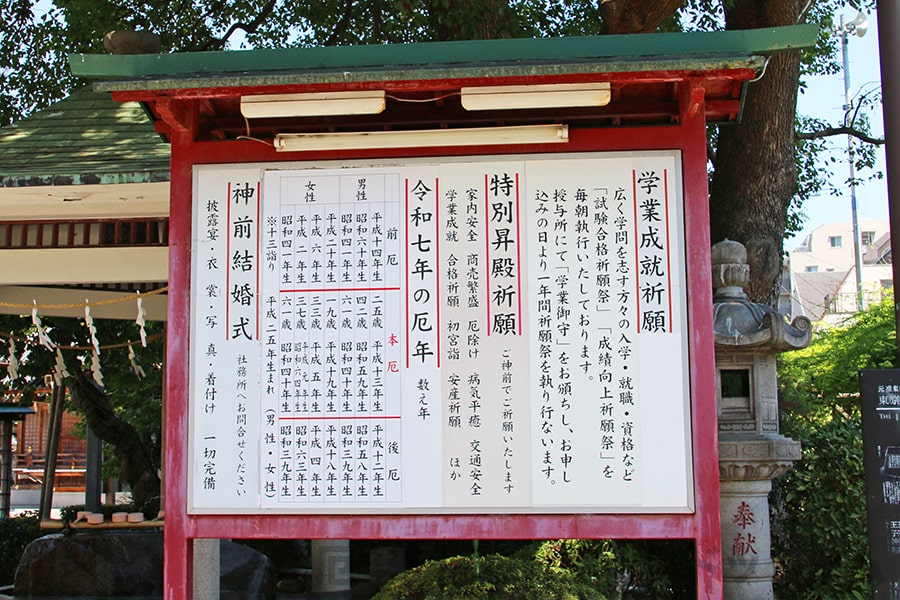 学業成就祈願
広く学問を志す方々の入学・就職・資格など
「試験合格祈願祭」「成績向上祈願祭」を
毎朝執行いたしております。
授与所にて「学業御守」をお頒ちし、お申し
込みの日より一年間祈願祭を執り行ないます。
特別昇殿祈願
ご神前でご祈願いたします
家内安全 商売繁盛 厄除け 病気平癒 交通安全
学業成就 合格祈願 初宮詣 安産祈願 ほか
令和七年の厄年 数え年
前厄 本厄 後厄
男性
平成十四年生 二五歳 平成十三年生 平成十二年生
昭和六十年生 四二歳 昭和五九年生 昭和五八年生
昭和四一年生 六一歳 昭和四十年生 昭和三九年生
女性
平成二十年生 一九歳 平成十九年生 平成十八年生
平成六年生 三三歳 平成五年生 平成四年生
平成二年生 三七歳 平成元年生 昭和六四年生 昭和六三年生
昭和四一年生 六一歳 昭和四十年生 昭和三九年生
※十三詣り 平成二五年生まれ（男性・女性）
神前結婚式 社務所へお問合せください
披露宴・衣裳・写真・着付け 一切完備
奉献